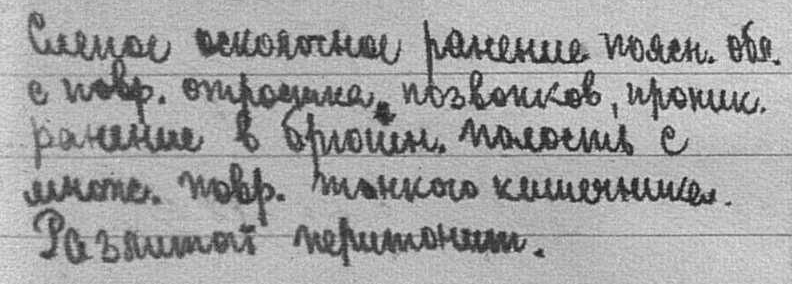 Слепое осколочное ранение поясн. обл.
с повр. отростка позвонков, проник.
ранение в брюшн. полость с
множ. повр. тонкого кишечника.
Разлитой перитонит.